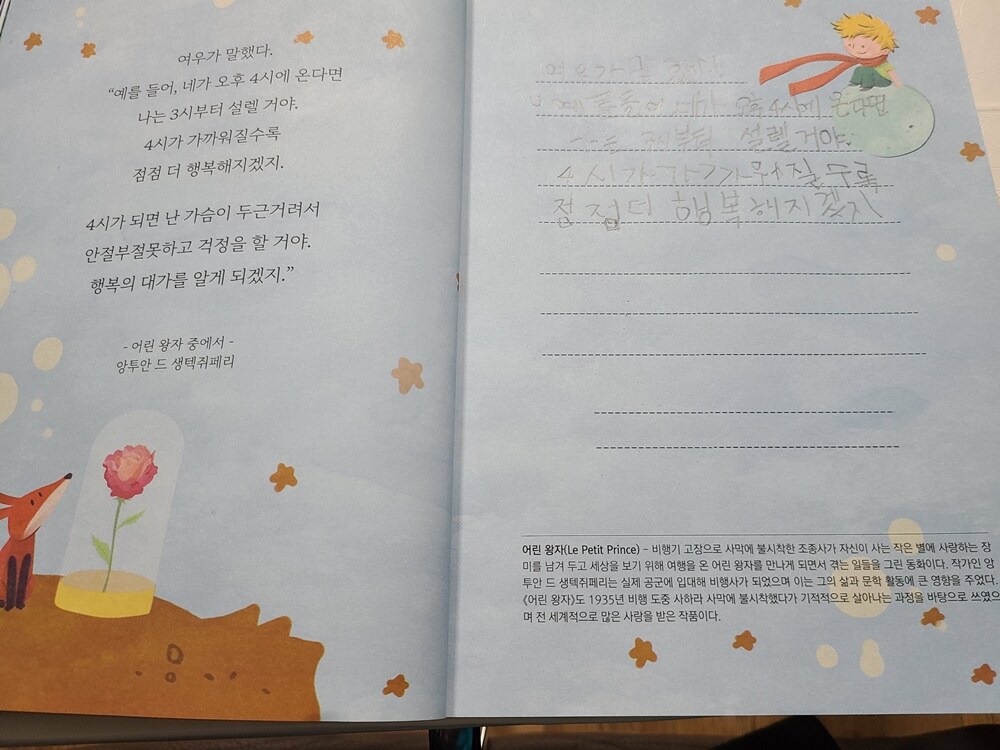 여우가 말했다.
“예를 들어, 네가 오후 4시에 온다면
나는 3시부터 설렐 거야.
4시가 가까워질수록
점점 더 행복해지겠지.
4시가 되면 난 가슴이 두근거려서
안절부절못하고 걱정을 할 거야.
행복의 대가를 알게 되겠지.”
- 어린 왕자 중에서 -
앙투안 드 생텍쥐페리
여우가
네가 오후 4시에 온다면
설렐 거야.
4시가 가까워질수록
점점더 행복해지겠지
어린 왕자(Le Petit Prince) – 비행기 고장으로 사막에 불시착한 조종사가 자신이 사는 작은 별에 사랑하는 장
미를 남겨 두고 세상을 보기 위해 여행을 온 어린 왕자를 만나게 되면서 겪는 일들을 그린 동화이다. 작가인 앙
투안 드 생텍쥐페리는 실제 공군에 입대해 비행사가 되었으며 이는 그의 삶과 문학 활동에 큰 영향을 주었다.
《어린 왕자》도 1935년 비행 도중 사하라 사막에 불시착했다가 기적적으로 살아나는 과정을 바탕으로 쓰였으
며 전 세계적으로 많은 사랑을 받은 작품이다.